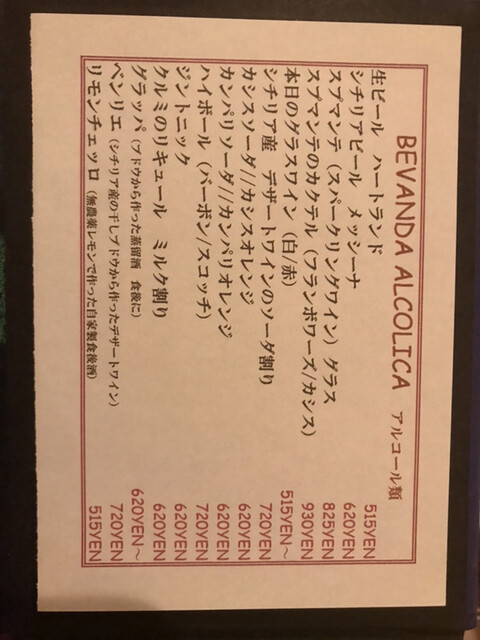 BEVANDA ALCOLICA アルコール類
生ビール ハートランド 515YEN
シチリアビール メッシーナ 620YEN
スプマンテ（スパークリングワイン）グラス 825YEN
スプマンテのカクテル（フランボワーズ/カシス） 930YEN
本日のグラスワイン（白/赤） 515YEN～
シチリア産 デザートワインのソーダ割り 720YEN
カシスソーダ//カシスオレンジ 620YEN
カンパリソーダ//カンパリオレンジ 620YEN
ハイボール（バーボン/スコッチ） 720YEN
ジントニック 620YEN
クルミのリキュール ミルク割り 620YEN
グラッパ（ブドウから作った蒸留酒 食後に） 620YEN～
ベンリエ（シチリア産の干しブドウから作ったデザートワイン） 720YEN
リモンチェッロ（無農薬レモンで作った自家製食後酒） 515YEN